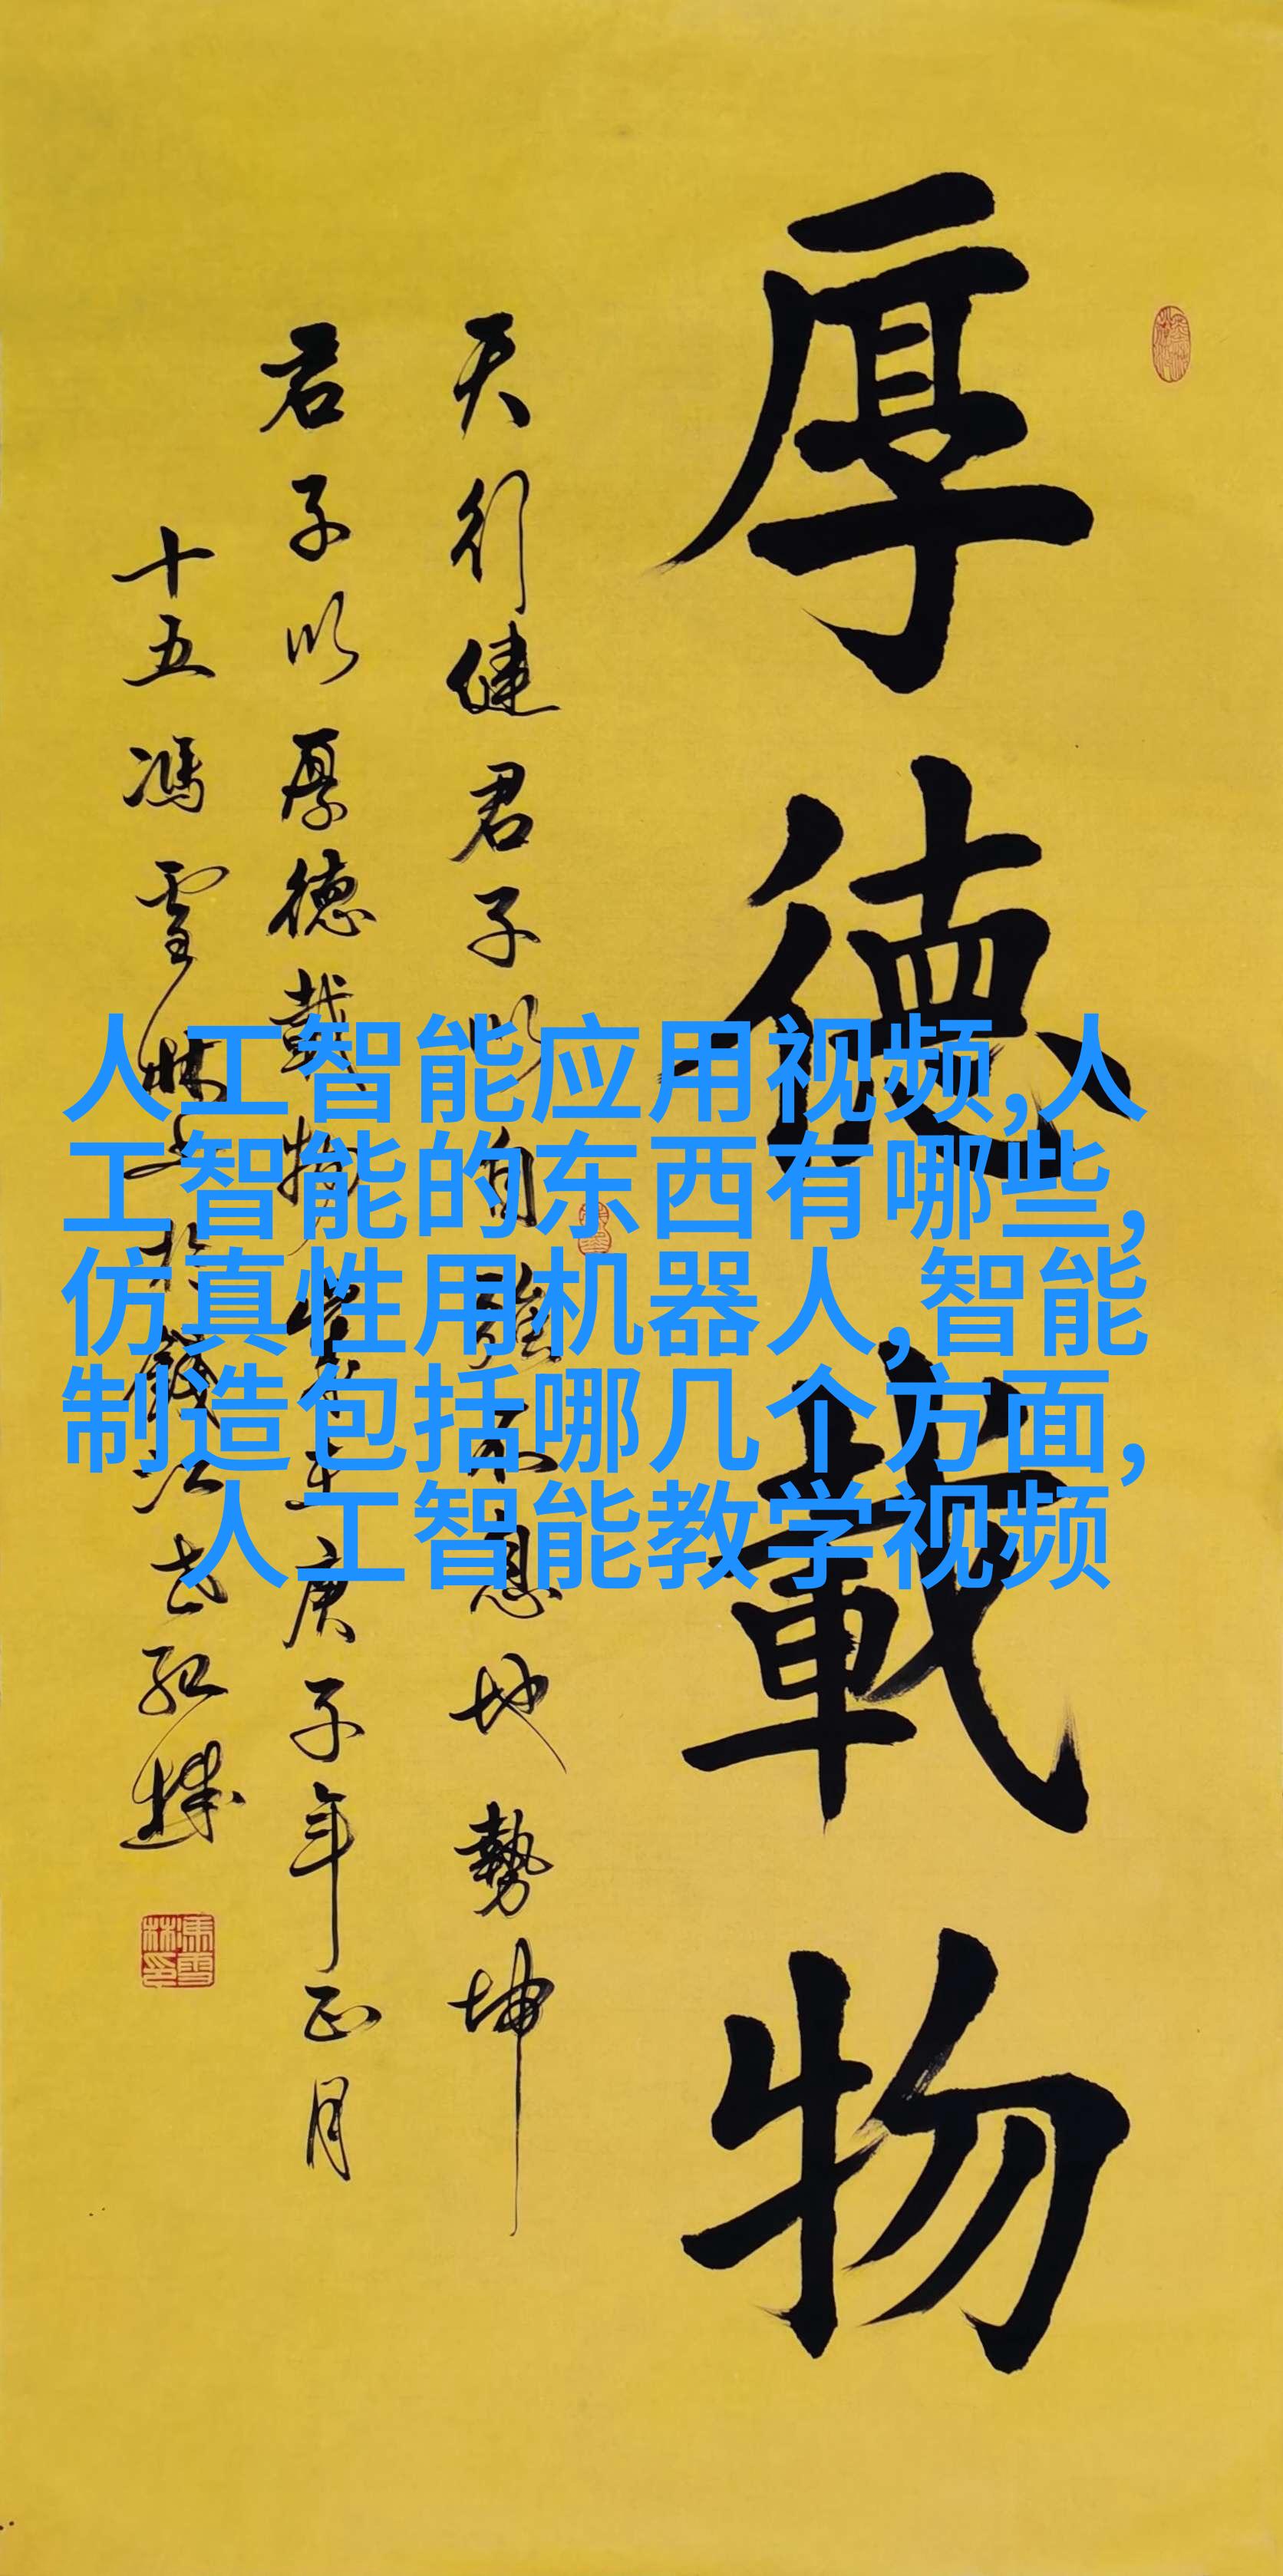 厚德載物
天行健君子以自強不息地勢坤
君子以厚德載物 庚子年正月
十五馮雪林
人工智能应用视频,人
工智能的东西有哪些,
仿真性用机器人,智能
制造包括哪几个方面,
人工智能教学视频
馮雪林印